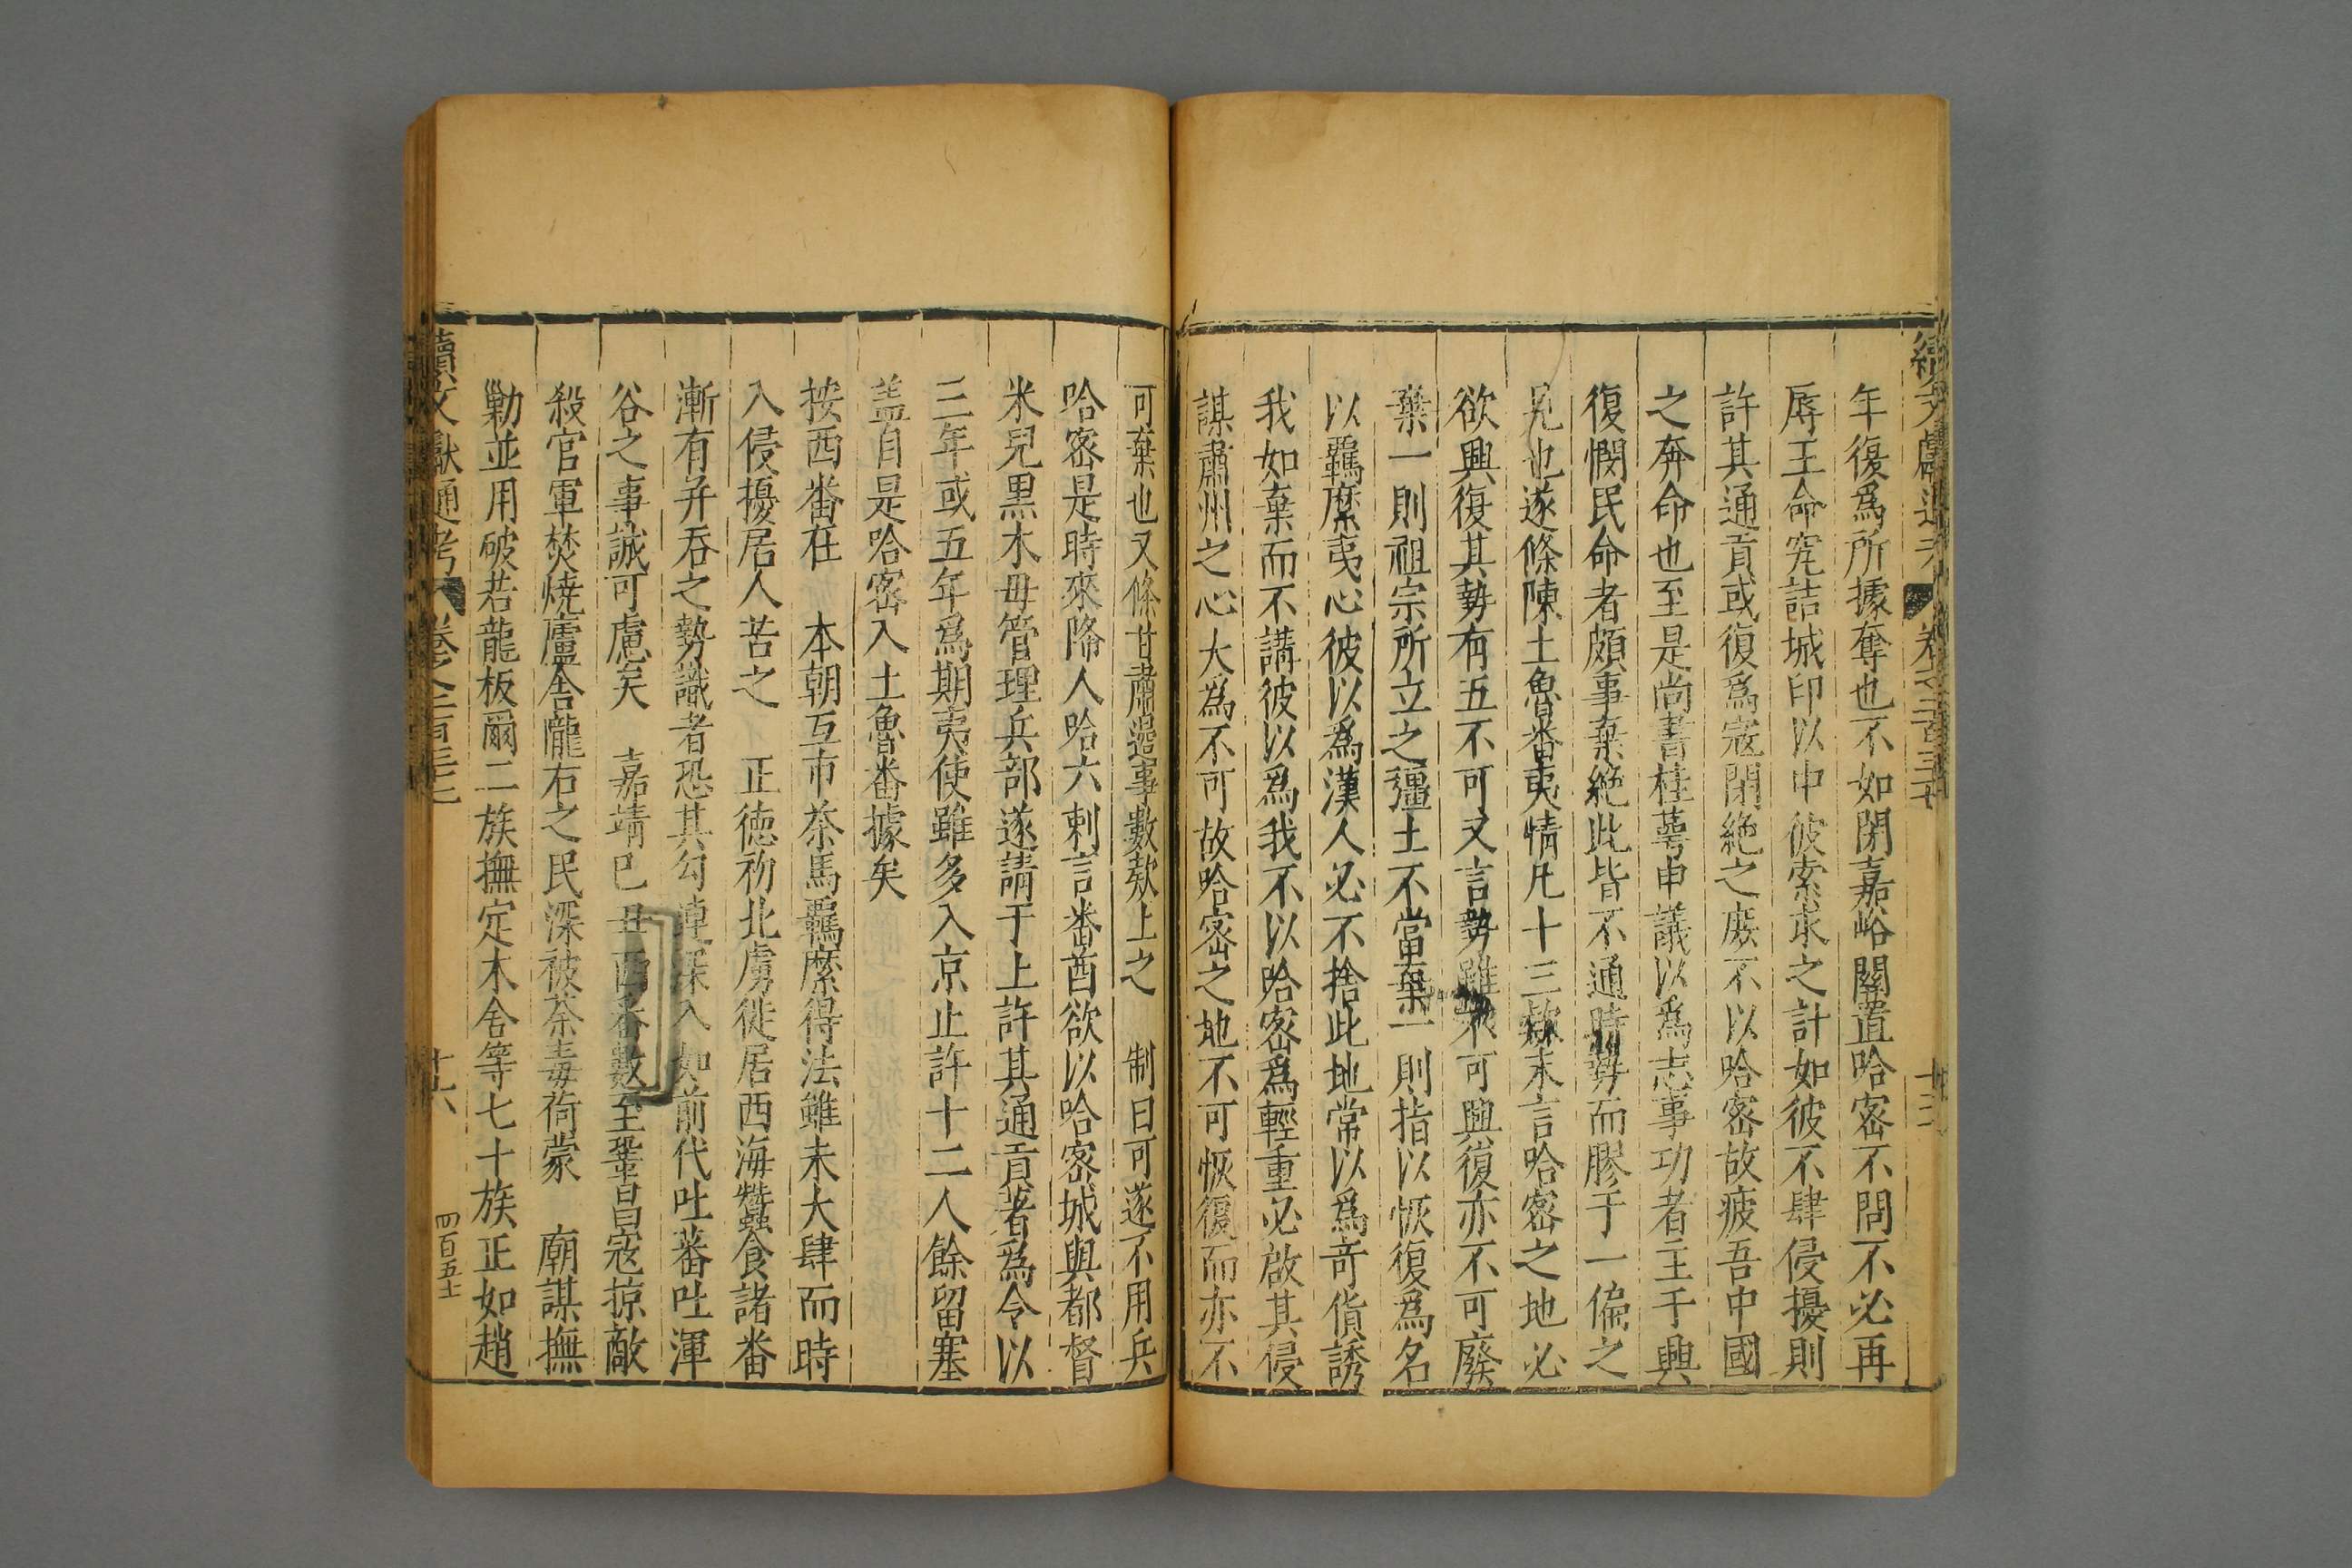 年復爲所據奪也不如閉嘉峪關置哈密不問不必再
辱王命究詰城印以中彼索求之計如彼不肆侵擾則
許其通貢或復爲寇閉絶之庶不以哈密故疲吾中國
之奔命也至是尚書桂萼申議以爲志事功者主于興
復憫民命者頗事棄絶此皆不通時勢而膠于一偏之
見也遂條陳土魯番夷情凡十三欵末言哈密之地必
欲興復其勢有五不可又言勢雖不可興復亦不可廢
棄一則祖宗所立之疆土不當棄一則指以恢復爲名
以羈縻夷心彼以爲漢人必不捨此地常以爲奇貨誘
我如棄而不講彼以爲我不以哈密爲輕重必啟其侵
謀肅州之心大爲不可故哈密之地不可恢復而亦不
可棄也又條甘肅邊事數欵上之 制曰可遂不用兵
哈密是時來降人哈六剌言番酋欲以哈密城與都督
米兒黑木毋管理兵部遂請于上許其通貢著爲令以
三年或五年爲期夷使雖多入京止許十二人餘留塞
盖自是哈密入土魯番據矣
按西番在 本朝互市茶馬羈縻得法雖未大肆而時
入侵擾居人苦之 正徳初北虜徙居西海蠶食諸番
漸有并吞之勢識者恐其勾連深入如前代吐蕃吐渾
谷之事誠可慮矣 嘉靖己丑西番數至鞏昌寇掠敵
殺官軍焚燒廬舍隴右之民深被荼毒荷蒙 廟謀撫
勦並用破若龍板爾二族撫定木舍等七十族正如趙
續文獻通考 卷之二百三十
十六
四百五十